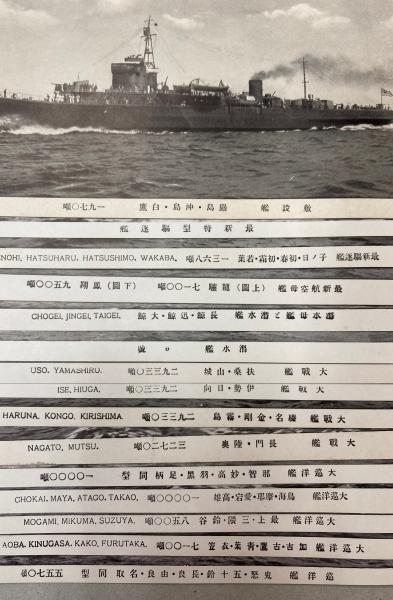 敷設艦 嚴島・沖島・白鷹 一九七〇噸
最新特型驅逐艦
最新驅逐艦 子ノ日・初春・初霜・若葉 一三六八噸 ENOHI, HATSUHARU, HATSUSHIMO, WAKABA.
最新航空母艦 (上圖) 龍驤 七一〇〇噸 (下圖) 鳳翔 九五〇〇噸
潜水母艦と潜水艦 長鯨・迅鯨・大鯨 CHOGEI, JINGEI, TAIGEI.
潜水艦 ろ號
大戰艦 扶桑・山城 二九三三〇噸 USO, YAMASHIRO.
大戰艦 伊勢・日向 二九三三〇噸 ISE, HIUGA.
大戰艦 榛名・金剛・霧島 二九三三〇噸 HARUNA, KONGO, KIRISHIMA.
大戰艦 長門・陸奥 三二七二〇噸 NAGATO, MUTSU.
大巡洋艦 那智・妙高・羽黒・足柄同型 一〇〇〇〇噸
大巡洋艦 鳥海・摩耶・愛宕・高雄 一〇〇〇〇噸 CHOKAI, MAYA, ATAGO, TAKAO.
大巡洋艦 最上・三隈・鈴谷 八五〇〇噸 MOGAMI, MIKUMA, SUZUYA.
大巡洋艦 加古・古鷹・青葉・衣笠 七一〇〇噸 AOBA, KINUGASA, KAKO, FURUTAKA.
巡洋艦 鬼怒・五十鈴・長良・由良・名取同型 五五七〇噸